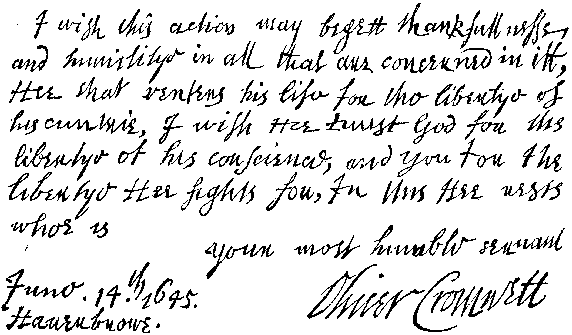 I wish this action may begett thankfullnesse,
and humilitye in all that are concerned in itt,
Hee that venters his life for the libertye of
his cuntrie, I wish Hee trust God for the
libertye of his conscience, and you for the
libertye Hee fights for, In this Hee rests
whoe is
your most humble servant
Oliver Cromwell
June. 14.th 1645.
Haverbrowe.